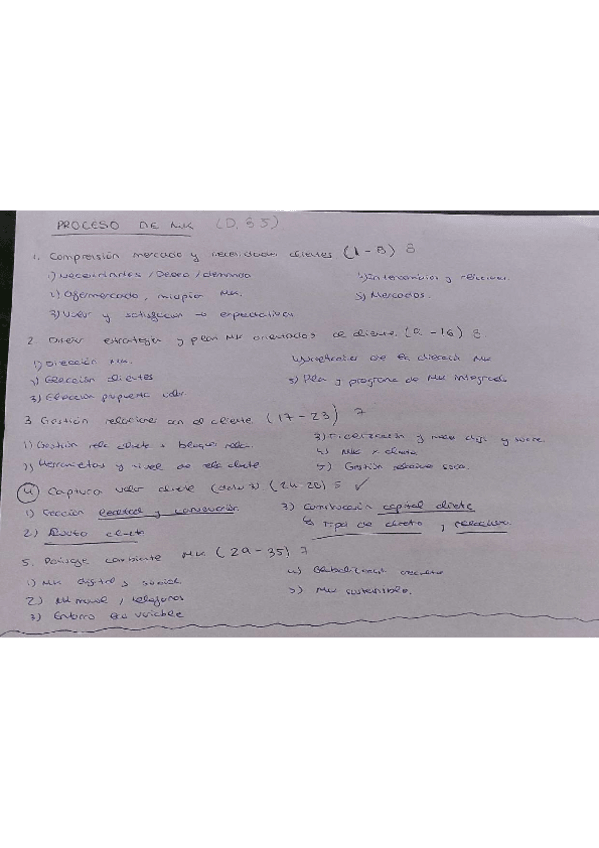 PROCESO DE MK (D. 35)
1. Comprensión mercado y necesidades clientes (1 - 8) 8
1) Necesidades / Deseo / demanda
4) Intercambios y relaciones
2) Ofermercado, miopia MK.
5) Mercados.
3) Valor y satisfaccion → expectativas
2. estrategia y plan MK orientados cliente. (9 - 16) 8.
1) Dirección MK.
4) de la dirección MK
2) Elección clientes
5) Plan y programa de MK integrado
3) Elección propuesta valor
3 Gestión relaciones con el cliente (17 - 23) 7
1) Gestión rela cliente +
2) Herramientas y nivel de rela cliente
4) MK x cliente
5) Gestión relacion socio.
4) Captura valor cliente (24 - 28) 5 ✓
1) lealtad y
3) Construcción capital cliente
tipo de cliente, relacion
2) cliente
5. Paisaje cambiante MK (29 - 35) 7
1) MK digital y social
4) Globalización
2) y
5) MK sustentable.
3) Entorno variable